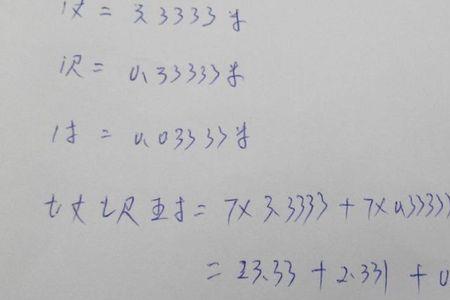 1丈 = 3.3333米
1尺 = 0.33333米
1寸 = 0.03333米
七丈七尺五寸 = 7×3.3333 + 7×0.33333
= 23.33 + 2.331 + 0